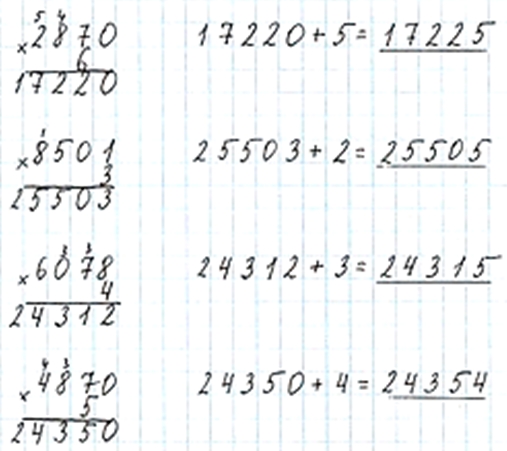 5 4
× 2870
6
17220
17220 + 5 = 17225
1
× 8501
3
25503
25503 + 2 = 25505
3 3
× 6078
4
24312
24312 + 3 = 24315
4 3
× 4870
5
24350
24350 + 4 = 24354